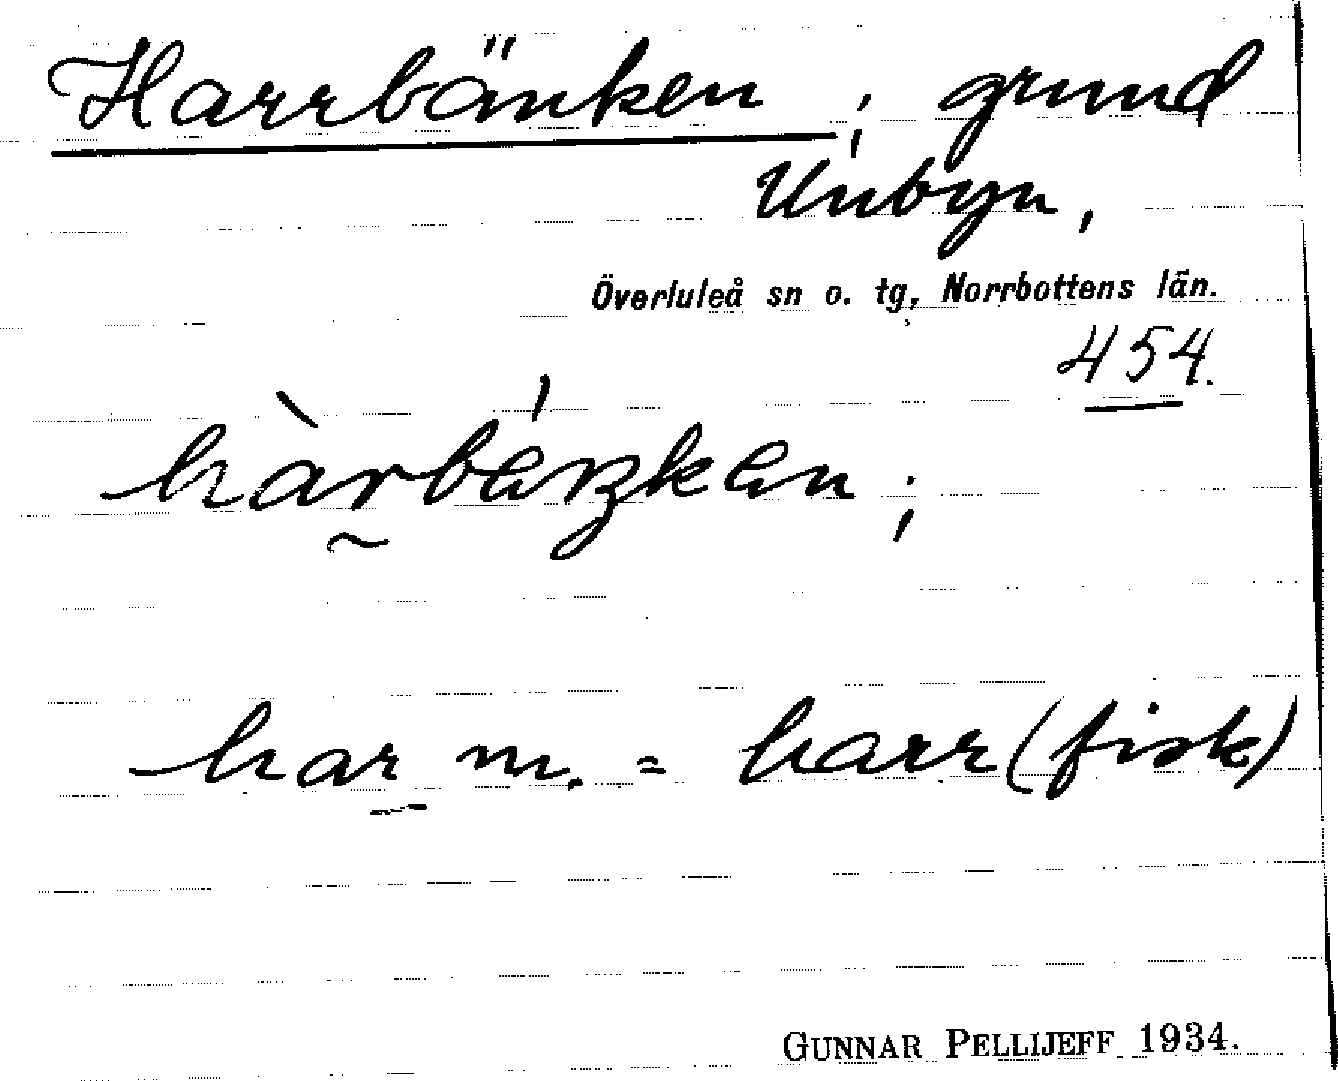 Harrbänken ; grund
Unbyn,
Överluleå sn o. tg, Norrbottens län.
454.
har m. = harr (fisk)
GUNNAR PELLIJEFF 1934.